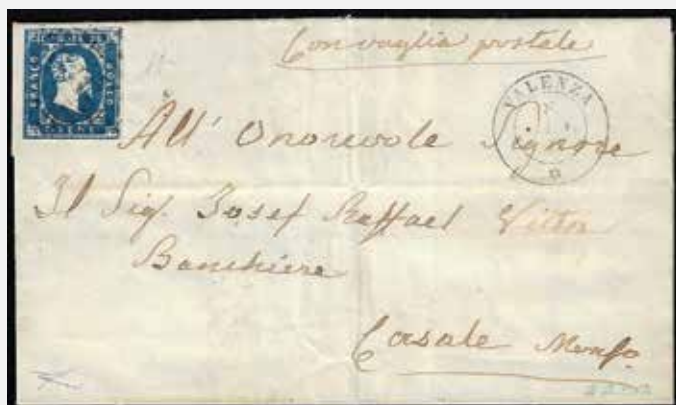 FRANCO
BOLLO
Con vaglia postale
VALENZA
All' Onorevole Signore
Il Sig. Josef Raffael Vitta
Banchiere
Casale Monfo.